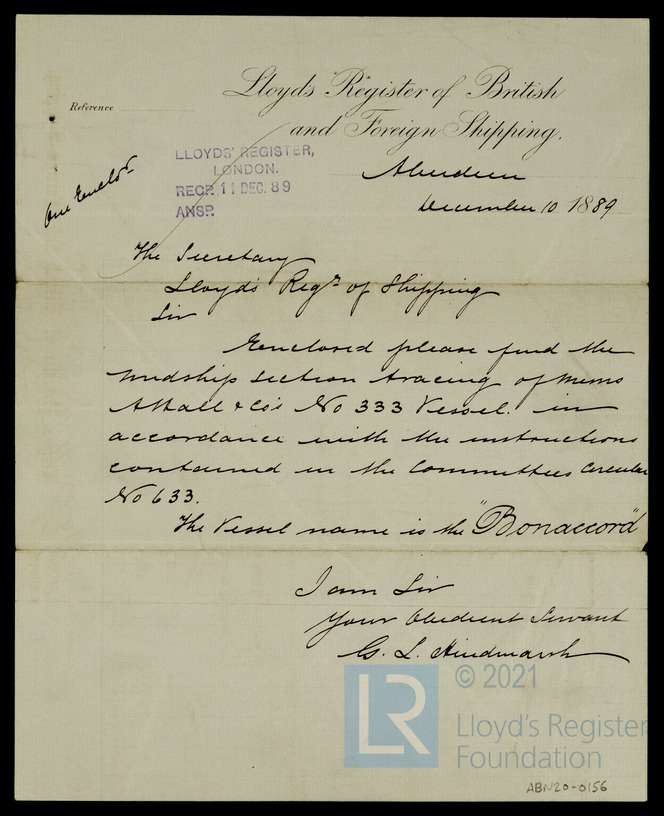 Lloyd's Register of British
and Foreign Shipping.
Reference
LLOYDS' REGISTER,
LONDON.
RECP. 11 DEC. 89
ANSP.
One Enclos.
Aberdeen
December 10 1889
The Secretary
Lloyd's Regr of Shipping
Sir
Enclosed please find the
Midship section tracing of Messrs
A Hall & Co's No 333 Vessel. in
accordance with the instructions
contained in the Committees Circular
No 633.
The Vessel name is the "Bonaccord"
I am Sir
Your Obedient Servant
G. L. Hindmarsh
LR
© 2021
Lloyd's Register
Foundation
ABN20-0156